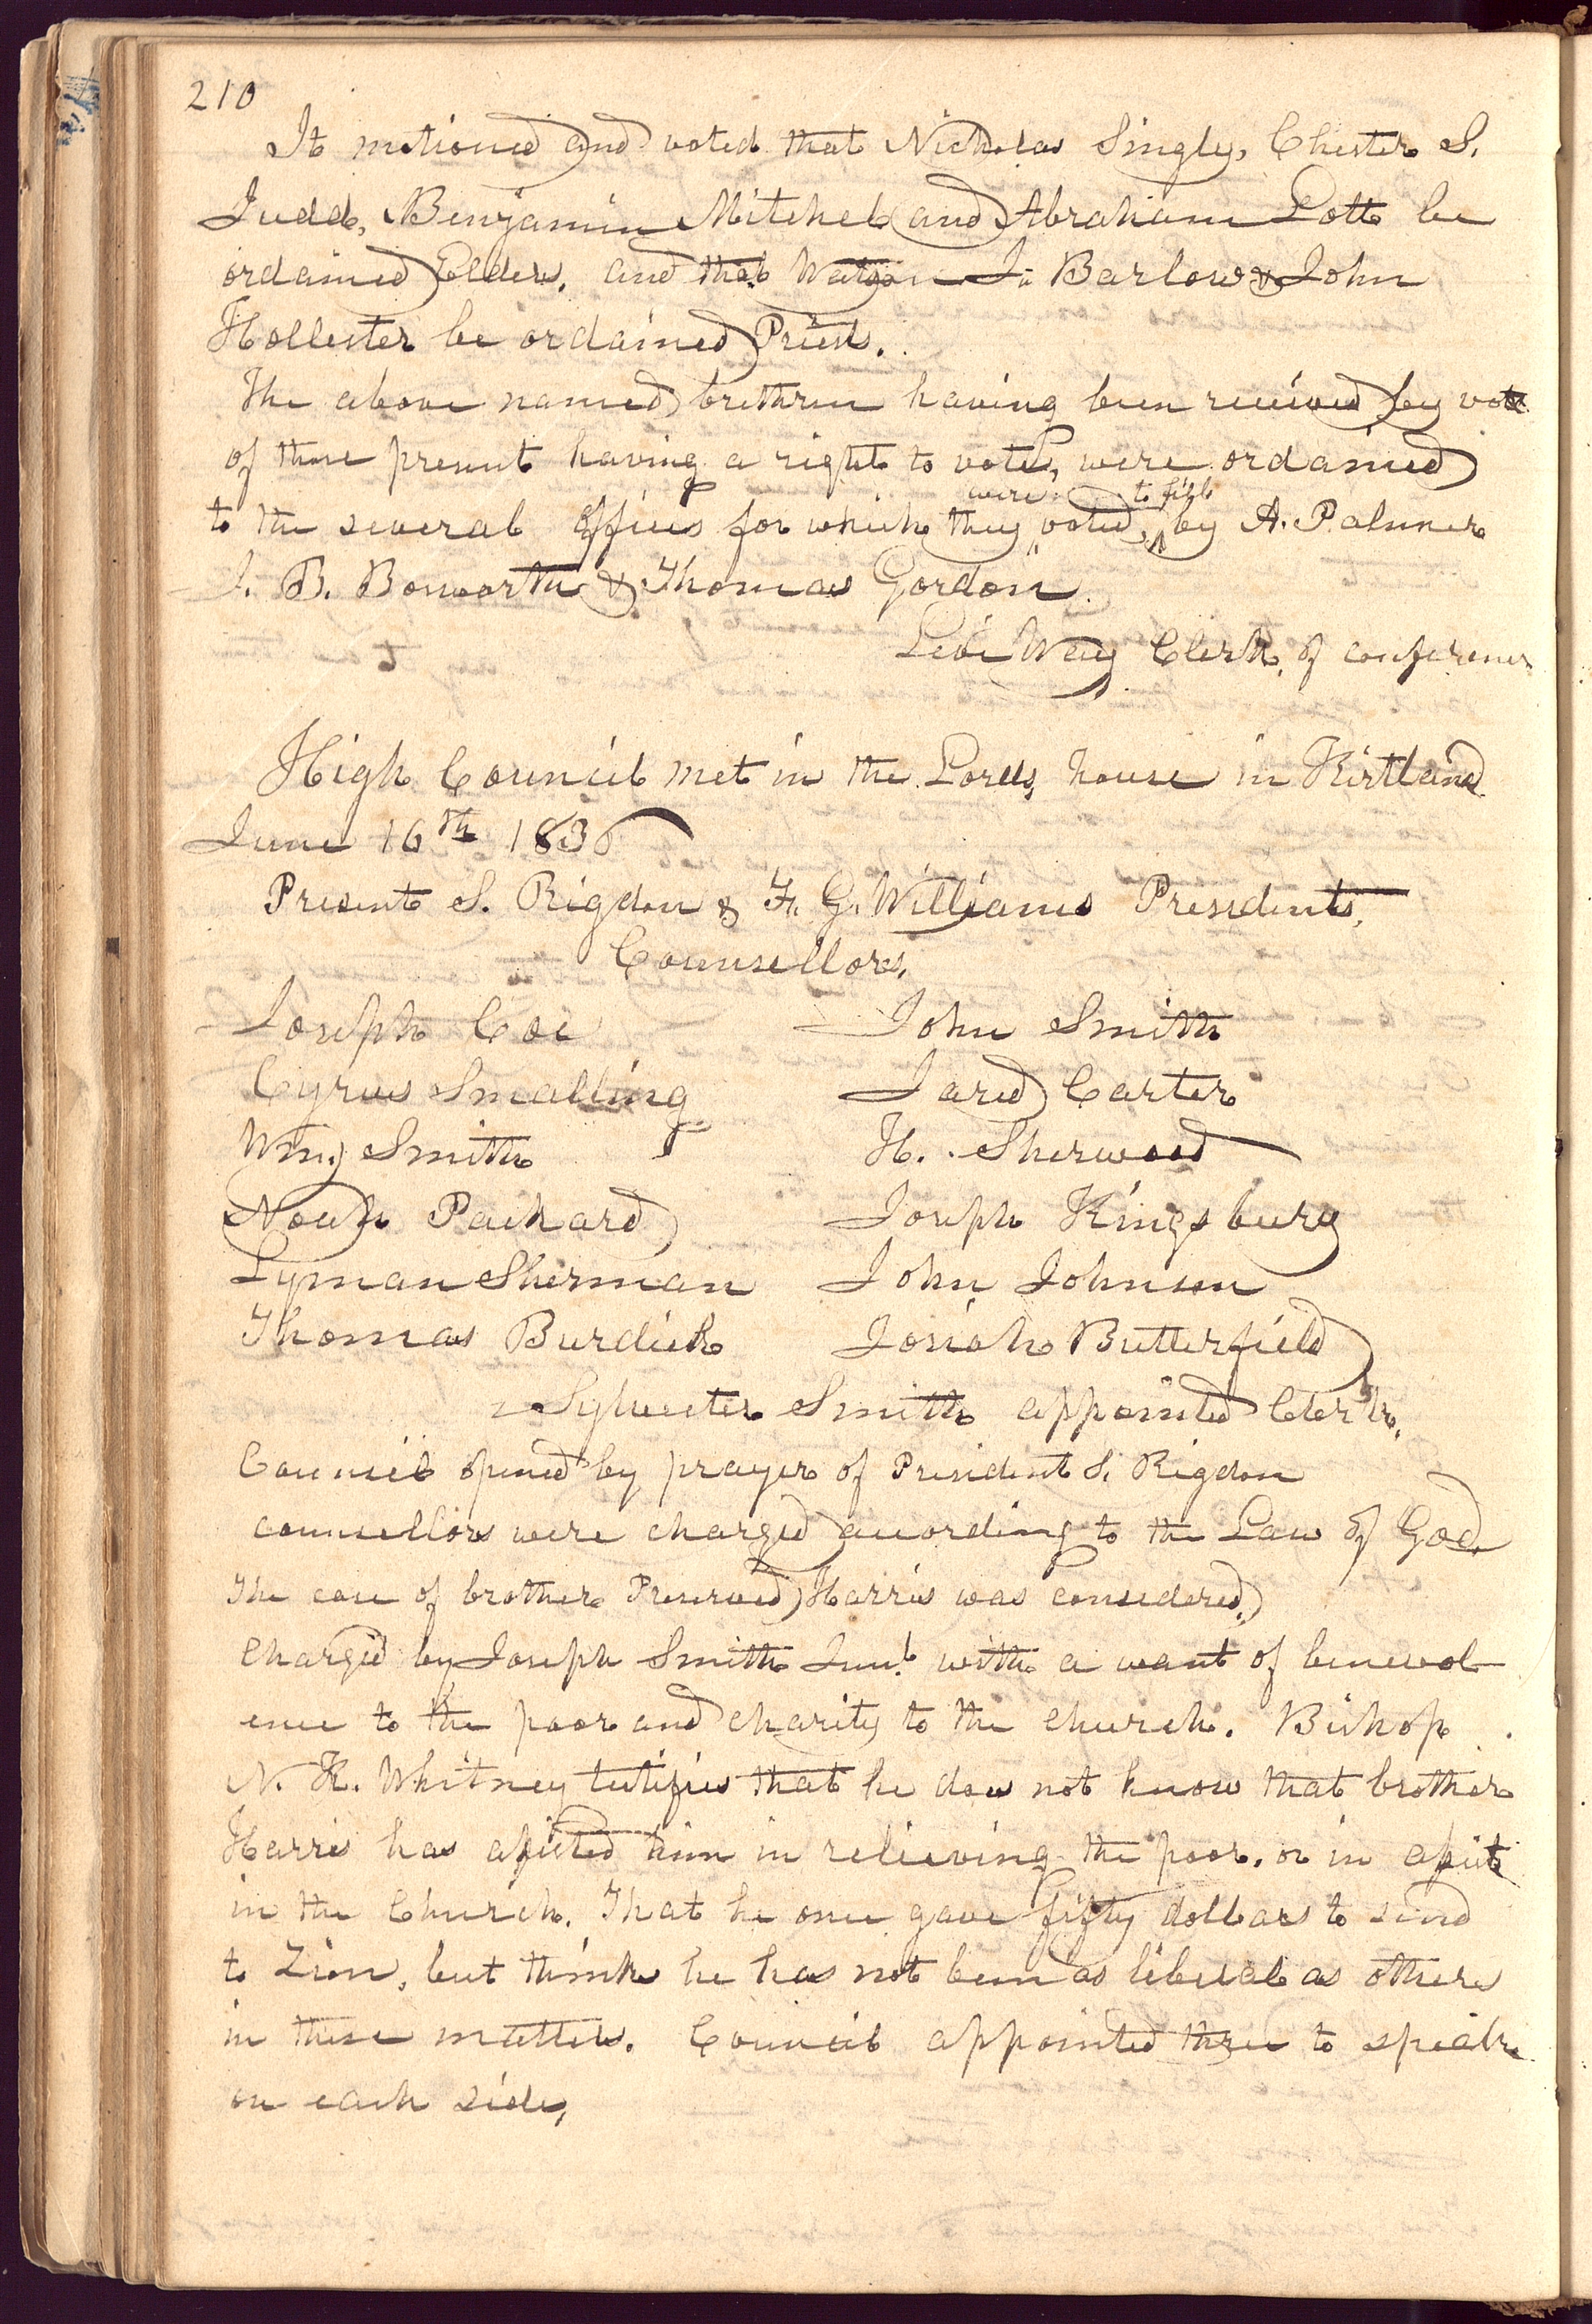 210
It motioned and voted that Nicholas Singly, Chester S.
Judd, Benjamin Mitchel and Abraham Lott be
ordained Elders, and that Watson I. Barlow & John
Hollester be ordained Priests.
The above named brethren having been received by vote
of those present having a right to vote, were ordained
were to fill
to the several offices for which they voted, by A. Palmer
J. B. Bosworth & Thomas Gordon.
Levi Way Clerk, of conference
High Council met in the Lords, house in Kirtland
June 16th 1836
Present S. Rigdon & F. G. Williams Presidents,
Counsellors,
Joseph Coe John Smith
Cyrus Smalling Jared Carter
Wm. Smith H. Sherwood
Noah Packard Joseph Kingsbury
Lyman Sherman John Johnson
Thomas Burdick Josiah Butterfield
Sylvester Smith appointed Clerk,
Council opened by prayer of President S. Rigdon
counsellors were charged according to the Law of God.
The case of brother Preserved Harris was considered,
Charged by Joseph Smith Junr. with a want of benevol
ence to the poor and charity to the church. Bishop
N. K. Whitney testifies that he does not know that brother
Harris has assisted him in relieving the poor, or in assist
in the Church. That he once gave fifty dollars to send
to Zion, but thinks he has not been as liberal as others
in these matters. Council appointed three to speak
on each side,